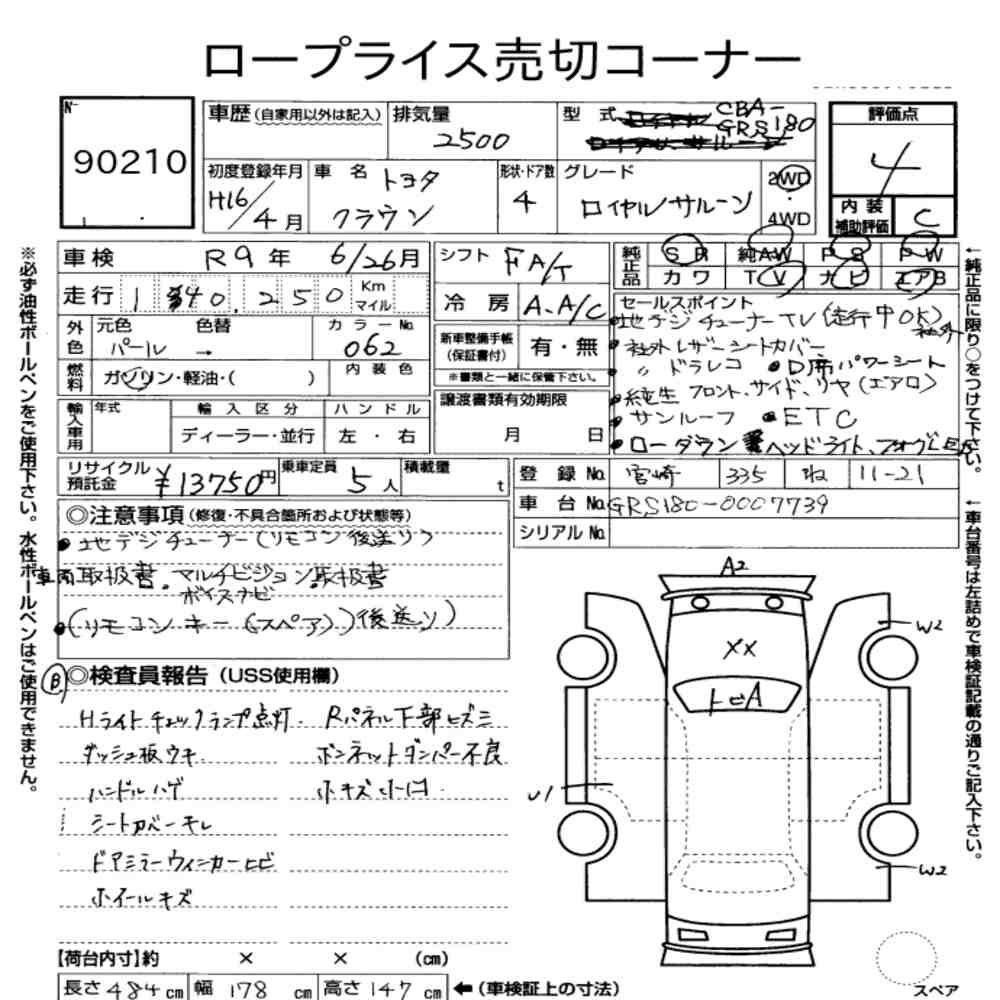 ロープライス売切コーナー
N-
90210
車歴 (自家用以外は記入) 排気量 2500 型式 CBA-GRS180
評価点 4
初度登録年月 H16/4月 車名 トヨタ クラウン 形状・ドア数 4 グレード ロイヤルサルーン 2WD・4WD
内装補助評価 C
車検 R9年 6/26月 シフト FA/T
純正品 SR 純AW PS PW
カワ TV ナビ エアB
走行 140.250 Km マイル 冷房 A.A/C
外色 元色 パール 色替 → カラーNo. 062
新車整備手帳 (保証書付) 有・無
※書類と一緒に保管下さい。
燃料 ガソリン・軽油・( ) 内装色
輸入車用 年式 輸入区分 ハンドル
ディーラー・並行 左・右
譲渡書類有効期限
月 日
セールスポイント
地デジチューナーTV (走行中OK) 社外
・社外レザーシートカバー
〃 ドラレコ ●D席パワーシート
純生 フロント、サイド、リヤ (エアロ)
・サンルーフ ●ETC
・ローダウン ヘッドライト、フォグ
リサイクル預託金 ¥13750円 乗車定員 5人 積載量 t
登録No. 宮崎 335 ね 11-21
車台No. GRS180-0007739
シリアルNo.
◎注意事項 (修復・不具合箇所および状態等)
・地デジチューナー (リモコン後送り)
車両取扱書. マルチビジョン取扱書
ボイスナビ
・(リモコンキー (スペア)) 後送り)
B ◎検査員報告 (USS使用欄)
Hライトチェックランプ点灯. Rパネル下部ヒズミ
ダッシュ板ウキ. ボンネットダンパー不良
ハンドルハゲ 小キズ小凹
シートカバーキレ
ドアミラーウィンカーヒビ
ホイールキズ
A2
W2
XX
トビA
U1
W2
スペア
【荷台内寸】約 × × (cm)
長さ 484 cm 幅 178 cm 高さ 147 cm ←(車検証上の寸法)
※必ず油性ボールペンをご使用下さい。水性ボールペンはご使用できません。
←純正品に限り○をつけて下さい。
←車台番号は左詰めで車検証記載の通りご記入下さい。